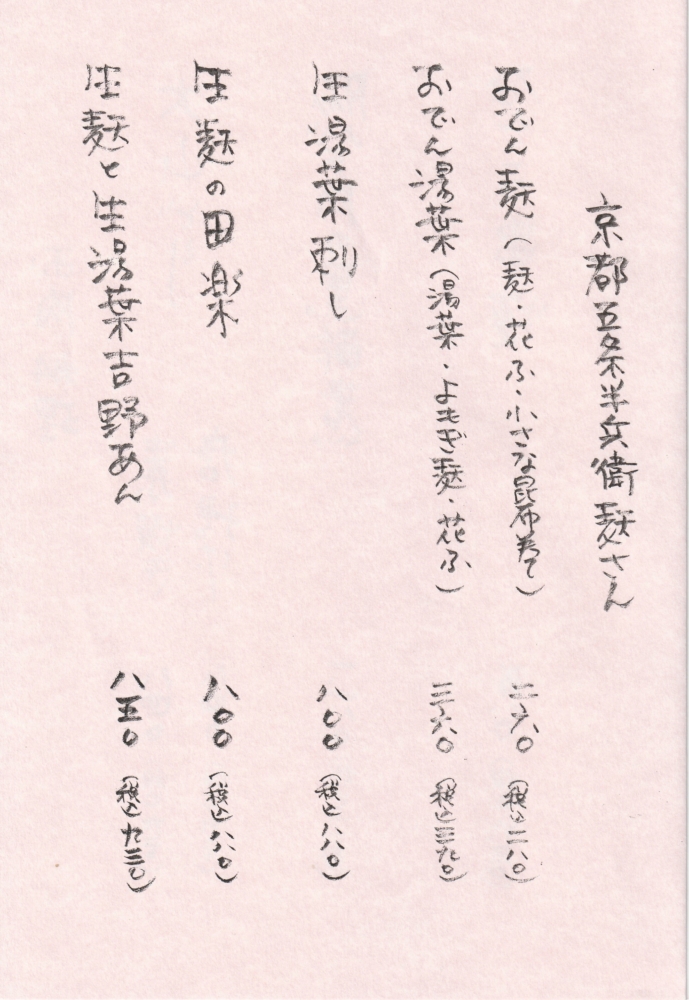 京都五条半兵衛麸さん
おでん麸（麸・花ふ・小さな昆布巻て） 二六〇（税込二八〇）
おでん湯葉（湯葉・よもぎ麸・花ふ） 三六〇（税込三九〇）
生湯葉刺し 八〇〇（税込八八〇）
生麸の田楽 八〇〇（税込八八〇）
生麸と生湯葉吉野あん 八五〇（税込九三〇）